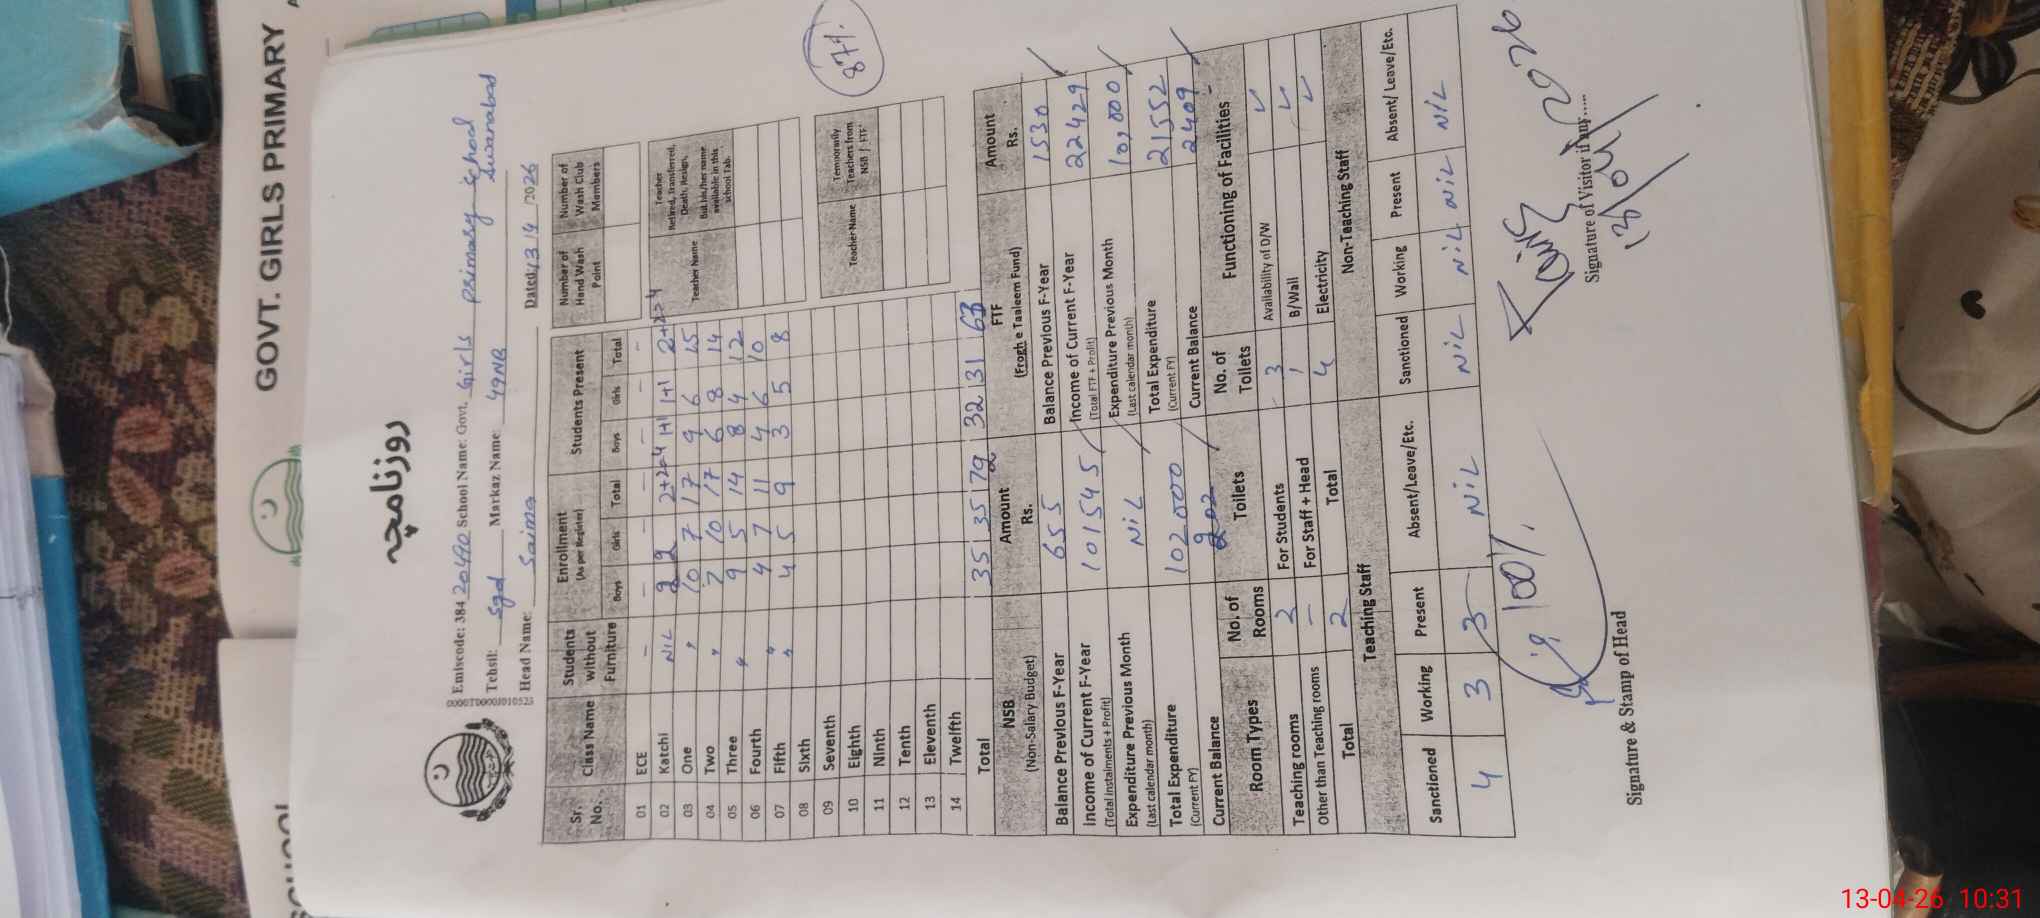 GOVT. GIRLS PRIMARY
روزنامچہ
Emiscode: 384 20490 School Name: Govt. Girls primary School
Tehsil: Sgd Markaz Name: 49NB
Head Name: Saima Dated: 13/4/2026
Sr. No. Class Name Students without Furniture Enrollment (As per Register) Students Present
Boys Girls Total Boys Girls Total
01 ECE - - - - - - -
02 Katchi NIL 2 2 2+2=4 1+1 1+1 2+2=4
03 One " 10 7 17 9 6 15
04 Two " 7 10 17 6 8 14
05 Three " 9 5 14 8 4 12
06 Fourth " 4 7 11 4 6 10
07 Fifth " 4 5 9 3 5 8
08 Sixth
09 Seventh
10 Eighth
11 Ninth
12 Tenth
13 Eleventh
14 Twelfth
Total 35 35 79 32 31 63
Number of Hand Wash Point Number of Wash Club Members
Teacher Name Teacher Retired, Transferred, Death, Resign, But his/her name available in this school Tab.
Teacher Name Temporarily Teachers from NSB / FTF
87%
NSB (Non-Salary Budget) Amount Rs. FTF (Frogh e Taaleem Fund) Amount Rs.
Balance Previous F-Year 655 Balance Previous F-Year 1530
Income of Current F-Year (Total Instalments + Profit) 101545 Income of Current F-Year (Total FTF + Profit) 22429
Expenditure Previous Month (Last calendar month) NIL Expenditure Previous Month (Last calendar month) 10,000
Total Expenditure (Current FY) 102000 Total Expenditure (Current FY) 21552
Current Balance 202 Current Balance 2409
Room Types No. of Rooms Toilets No. of Toilets Functioning of Facilities
Teaching rooms 2 For Students 3 Availability of D/W ✓
Other than Teaching rooms - For Staff + Head 1 B/Wall ✓
Total 2 Total 4 Electricity ✓
Teaching Staff Non-Teaching Staff
Sanctioned Working Present Absent/Leave/Etc. Sanctioned Working Present Absent/ Leave/Etc.
4 3 3 NIL NIL NIL NIL NIL
100%
Signature & Stamp of Head
Signature of Visitor if any.....
13/04/2026
13-04-26 10:31